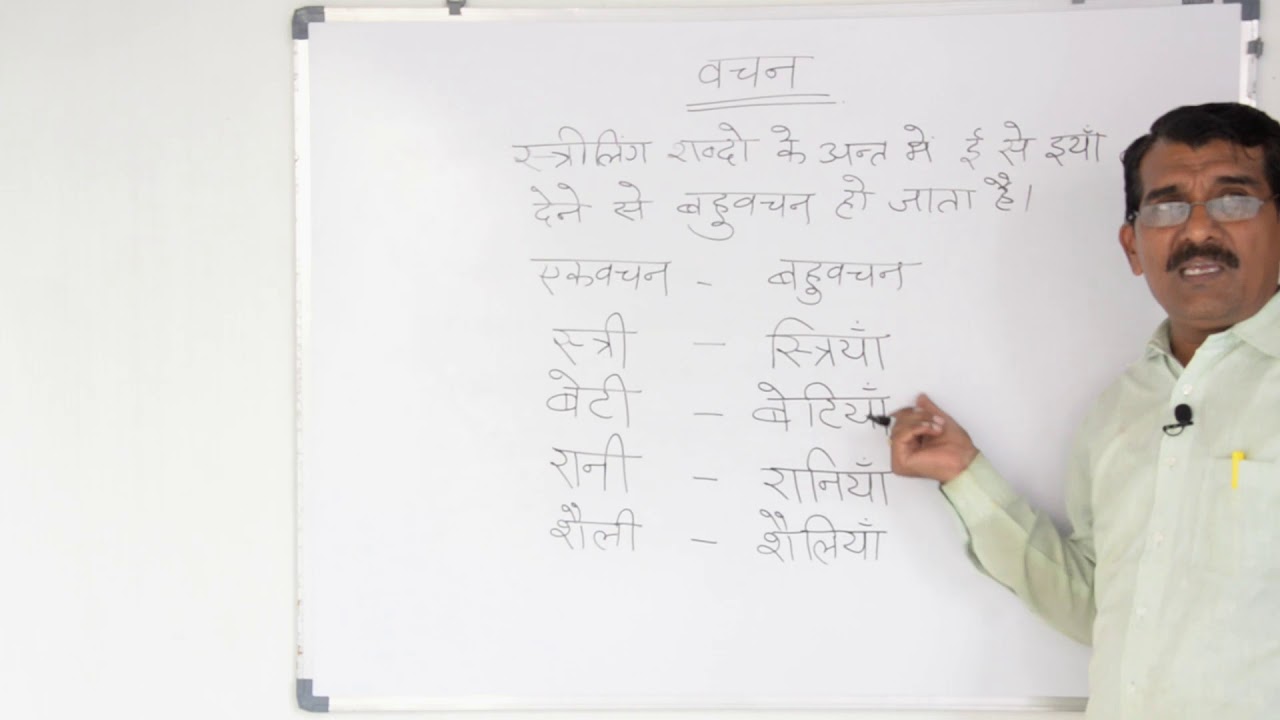 वचन
स्त्रीलिंग शब्दो के अन्त में ई से इयाँ
देने से बहुवचन हो जाता है।
एकवचन - बहुवचन
स्त्री - स्त्रियाँ
बेटी - बेटियाँ
रानी - रानियाँ
शैली - शैलियाँ